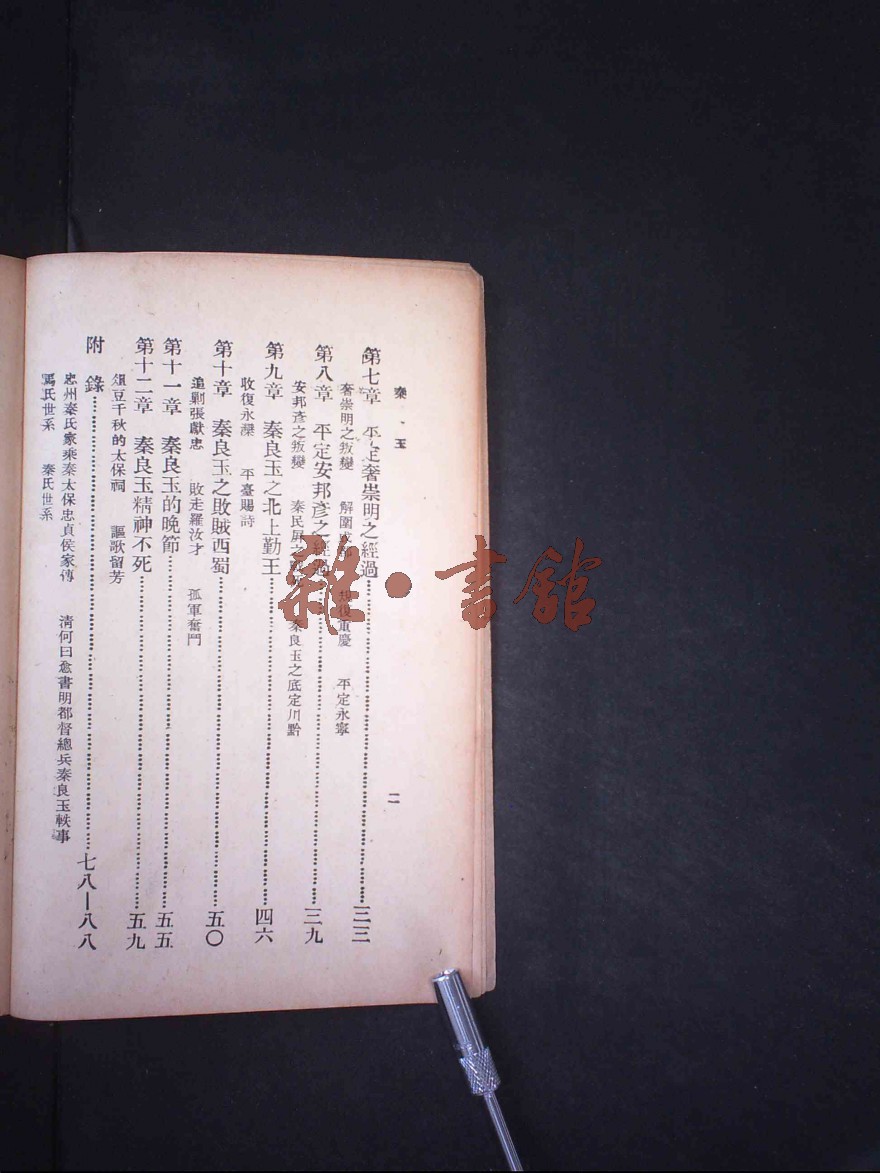 秦 玉
二
第七章 平定奢崇明之經過 三三
奢崇明之叛變 解圍成都 規復重慶 平定永寧
第八章 平定安邦彥之經過 三九
安邦彥之叛變 秦民屏之 秦良玉之底定川黔
第九章 秦良玉之北上勤王 四六
收復永灤 平臺賜詩
第十章 秦良玉之敗賊西蜀 五〇
追剿張獻忠 敗走羅汝才 孤軍奮鬥
第十一章 秦良玉的晚節 五五
第十二章 秦良玉精神不死 五九
俎豆千秋的太保祠 謳歌留芳
附錄 七八—八八
忠州秦氏家乘秦太保忠貞侯家傳 清何曰愈書明都督總兵秦良玉軼事
馬氏世系 秦氏世系
雜·書館